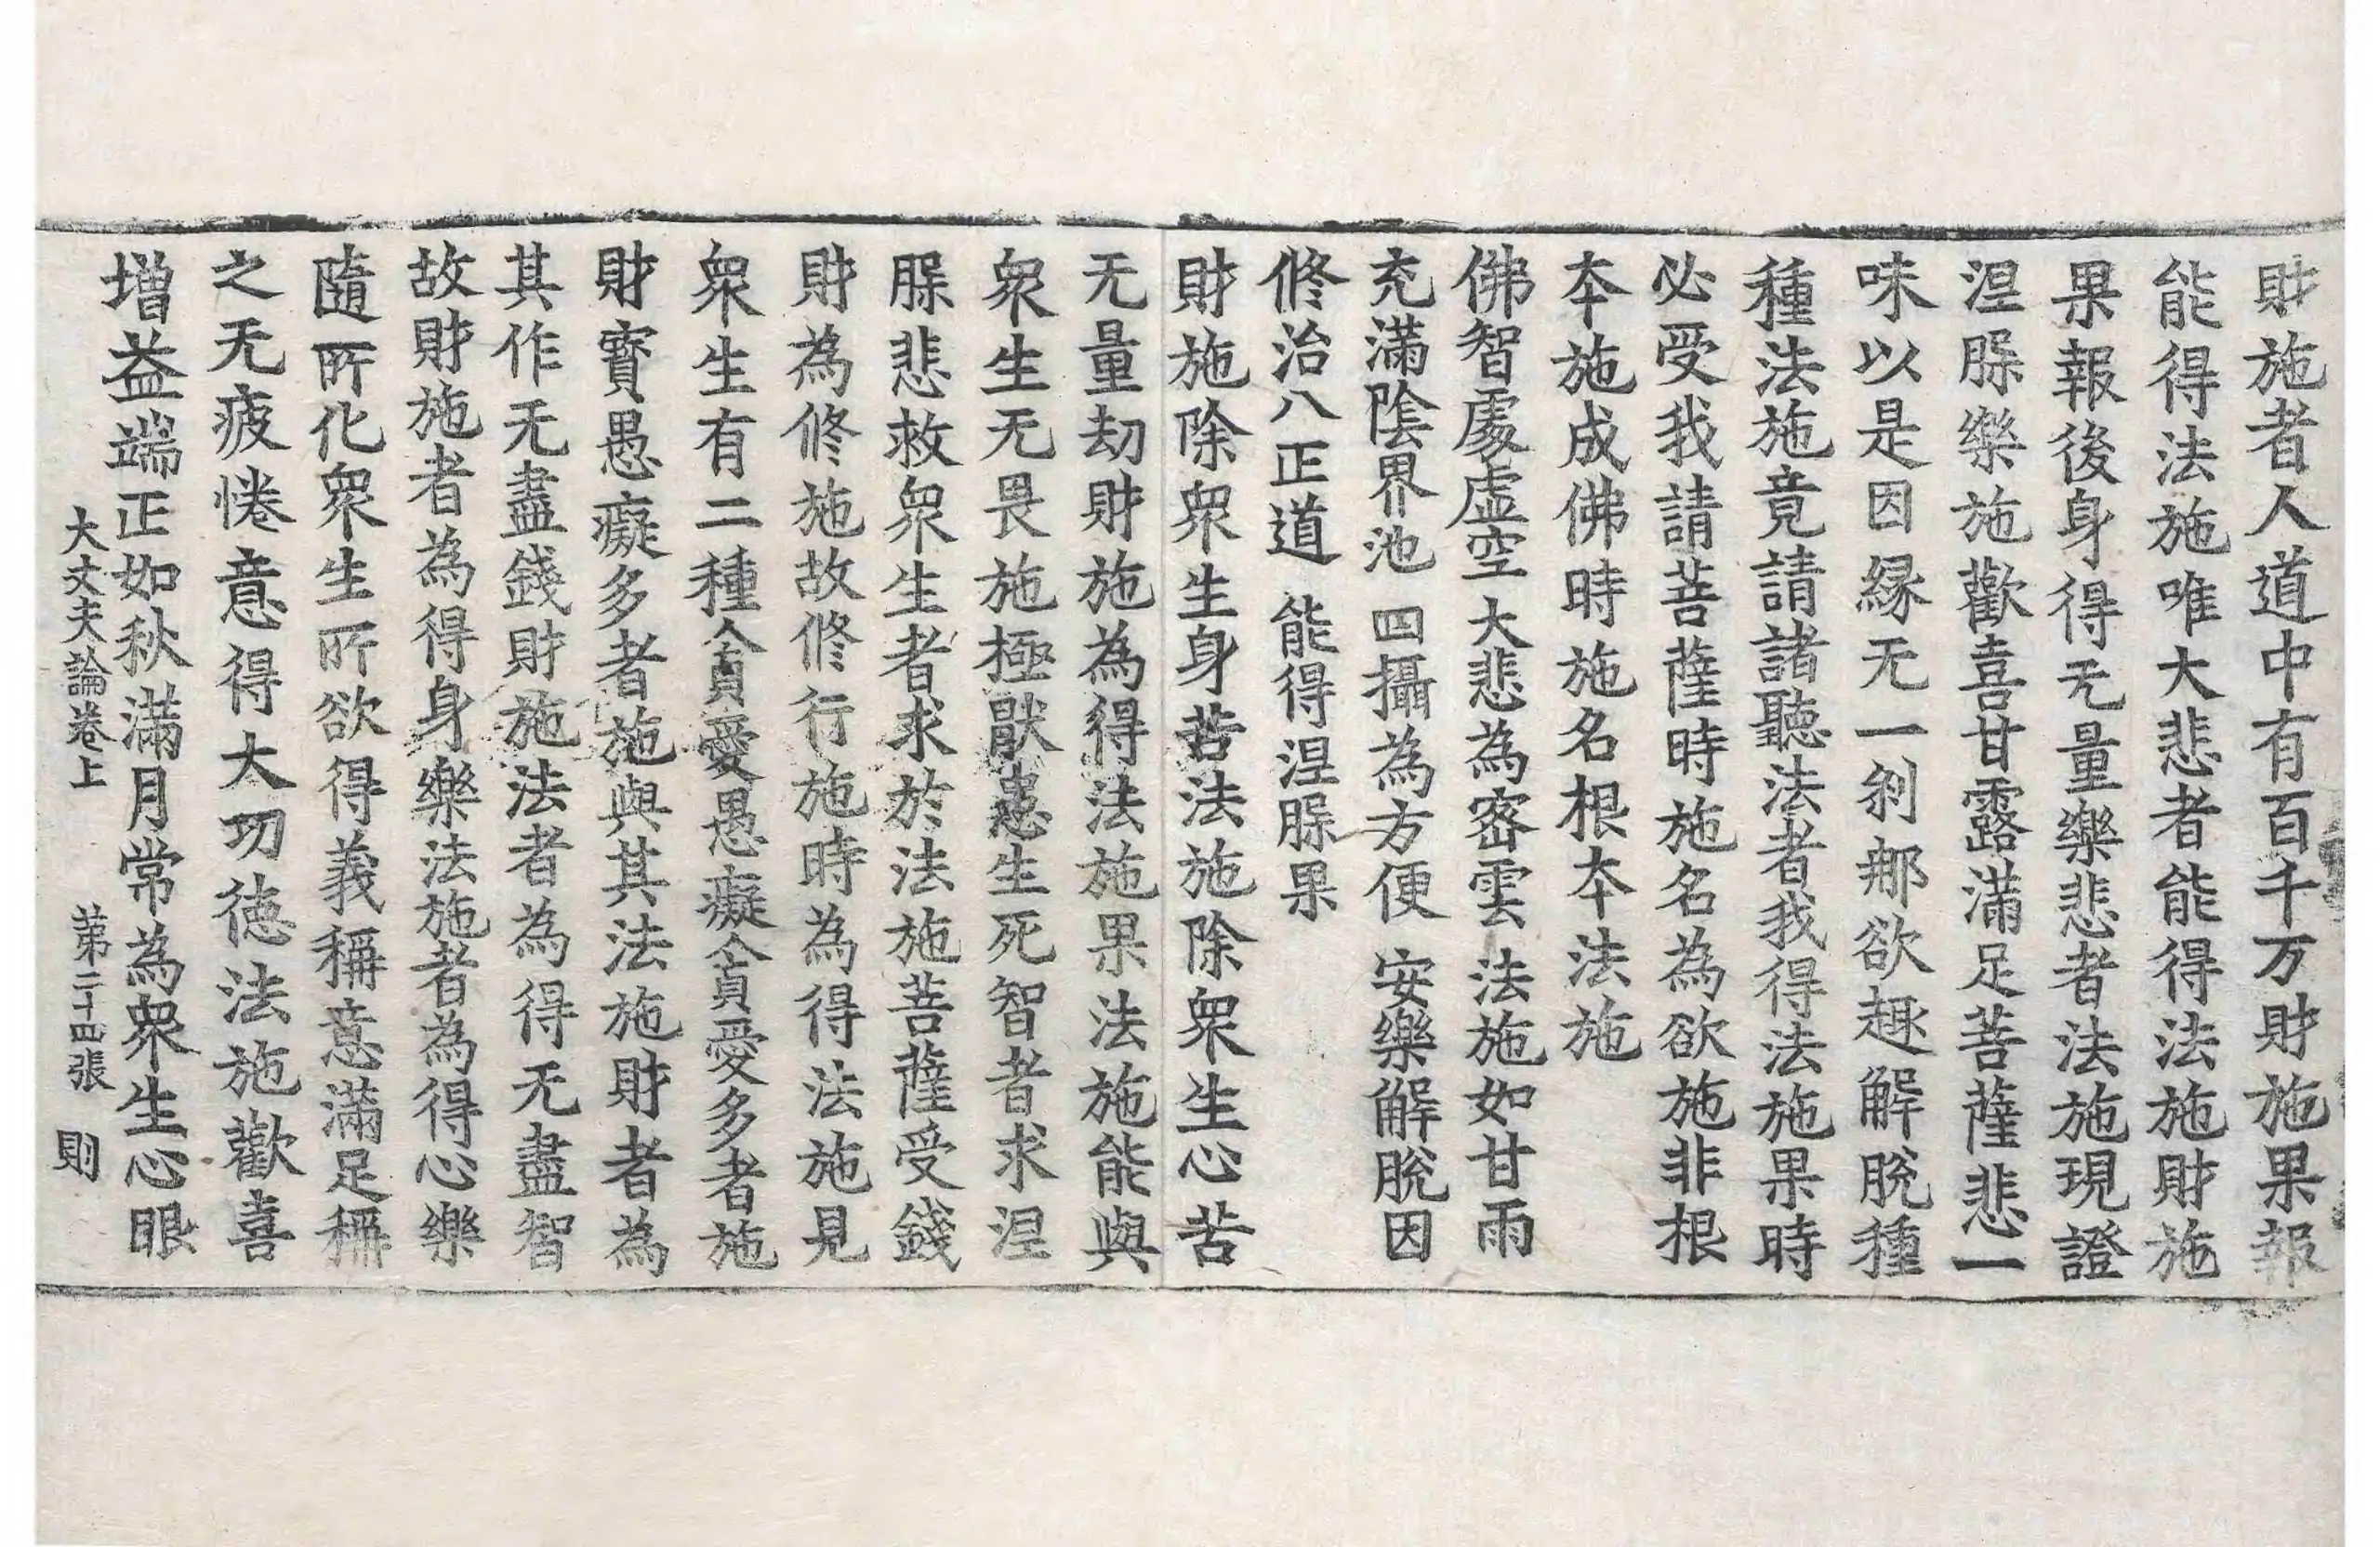 財施者人道中有百千万財施果報
能得法施唯大悲者能得法施財施
果報後身得无量樂悲者法施現證
涅䏶樂施歡喜甘露滿足菩薩悲一
味以是因緣无一刹那欲趣解脫種
種法施竟請諸聽法者我得法施果時
必受我請菩薩時施名為欲施非根
本施成佛時施名根本法施
佛智處虛空 大悲為密雲 法施如甘雨
充滿陰界池 四攝為方便 安樂解脫因
修治八正道 能得涅䏶果
財施除衆生身苦法施除衆生心苦
无量劫財施為得法施果法施能與
衆生无畏施極猒患生死智者求涅
䏶悲救衆生者求於法施菩薩受錢
財為修施故修行施時為得法施見
衆生有二種貪愛愚癡貪愛多者施
財寶愚癡多者施與其法施財者為
其作无盡錢財施法者為得无盡智
故財施者為得身樂法施者為得心樂
隨所化衆生所欲得義稱意滿足稱
之无疲惓意得大功德法施歡喜
增益端正如秋滿月常為衆生心眼
大丈夫論卷上 第二十四張 則